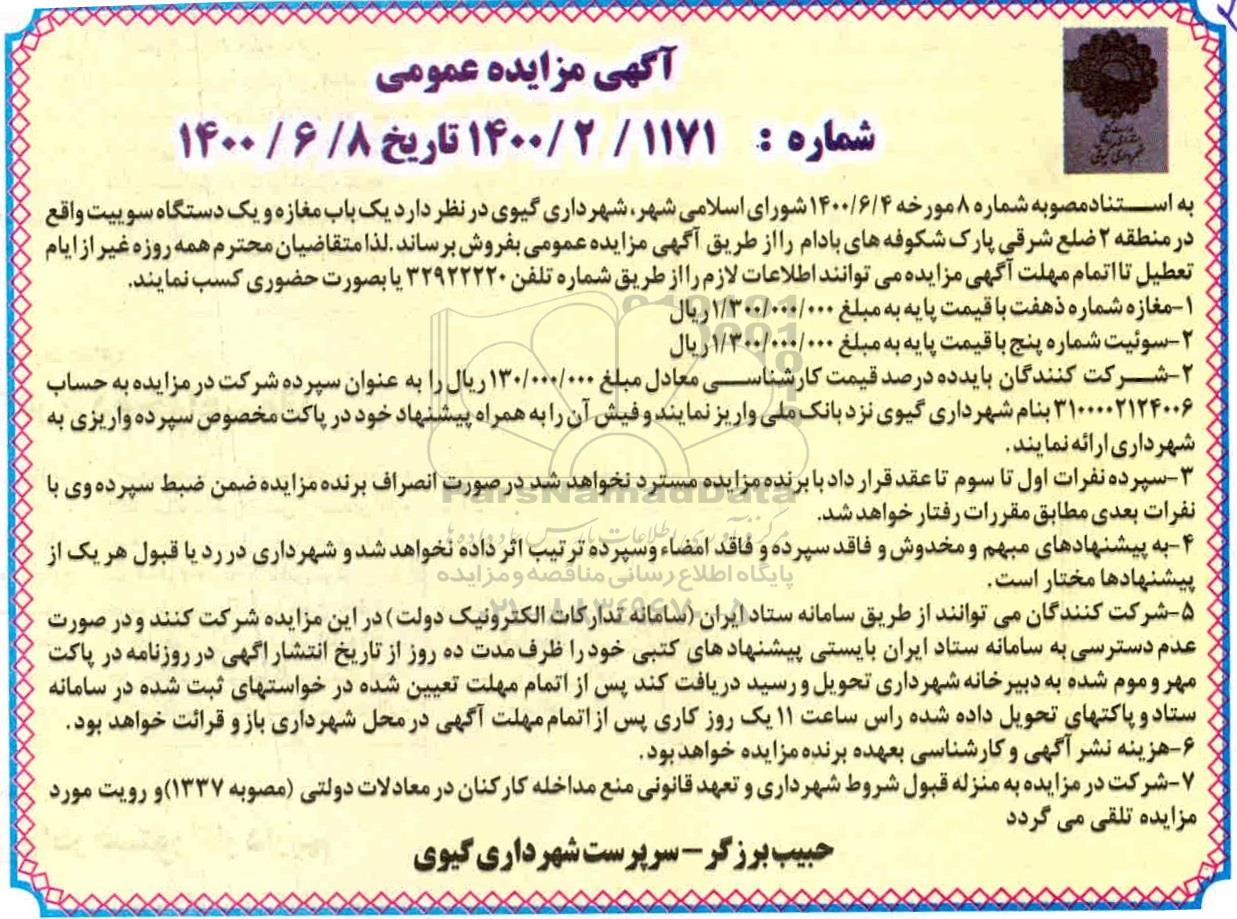 آگهی مزایده عمومی
شماره : ۱۱۷۱ / ۲ /۱۴۰۰ تاریخ ۸/ ۶ / ۱۴۰۰
به استنادمصوبه شماره ۸ مورخه ۱۴۰۰/۶/۴ شورای اسلامی شهر، شهرداری گیوی در نظر دارد یک باب مغازه و یک دستگاه سوییت واقع
در منطقه ۲ ضلع شرقی پارک شکوفه های بادام رااز طریق آگهی مزایده عمومی بفروش برساند.لذا متقاضیان محترم همه روزه غیر از ایام
تعطیل تا اتمام مهلت آگهی مزایده می توانند اطلاعات لازم رااز طریق شماره تلفن ۳۲۹۲۲۲۲۰ یا بصورت حضوری کسب نمایند.
۱-مغازه شماره ذهفت با قیمت پایه به مبلغ ۱/۳۰۰/۰۰۰/۰۰۰ ریال
۲-سوئیت شماره پنج با قیمت پایه به مبلغ ۱/۳۰۰/۰۰۰/۰۰۰ ریال
۲-شرکت کنندگان بایدده درصد قیمت کارشناسی معادل مبلغ ۱۳۰/۰۰۰/۰۰۰ ریال را به عنوان سپرده شرکت در مزایده به حساب
۳۱۰۰۰۰۲۱۲۴۰۰۶ بنام شهرداری گیوی نزد بانک ملی واریز نمایند و فیش آن را به همراه پیشنهاد خود در پاکت مخصوص سپرده واریزی به
شهرداری ارائه نمایند.
۳-سپرده نفرات اول تا سوم تا عقد قرار داد با برنده مزایده مسترد نخواهد شد در صورت انصراف برنده مزایده ضمن ضبط سپرده وی با
نفرات بعدی مطابق مقررات رفتار خواهد شد.
۴-به پیشنهادهای مبهم و مخدوش و فاقد سپرده و فاقد امضاء وسپرده ترتیب اثر داده نخواهد شد و شهرداری در رد یا قبول هر یک از
پیشنهادها مختار است.
۵-شرکت کنندگان می توانند از طریق سامانه ستاد ایران (سامانه تدارکات الکترونیک دولت) در این مزایده شرکت کنند و در صورت
عدم دسترسی به سامانه ستاد ایران بایستی پیشنهاد های کتبی خود را ظرف مدت ده روز از تاریخ انتشار اگهی در روزنامه در پاکت
مهر و موم شده به دبیرخانه شهرداری تحویل و رسید دریافت کند پس از اتمام مهلت تعیین شده در خواستهای ثبت شده در سامانه
ستاد و پاکتهای تحویل داده شده راس ساعت ۱۱ یک روز کاری پس از اتمام مهلت آگهی در محل شهرداری باز و قرائت خواهد بود.
۶-هزینه نشر آگهی و کارشناسی بعهده برنده مزایده خواهد بود.
۷-شرکت در مزایده به منزله قبول شروط شهرداری و تعهد قانونی منع مداخله کارکنان در معادلات دولتی (مصوبه ۱۳۳۷)و رویت مورد
مزایده تلقی می گردد
حبیب برزگر – سرپرست شهرداری گیوی
ParsNamadData
پایگاه اطلاع رسانی مناقصه و مزایده